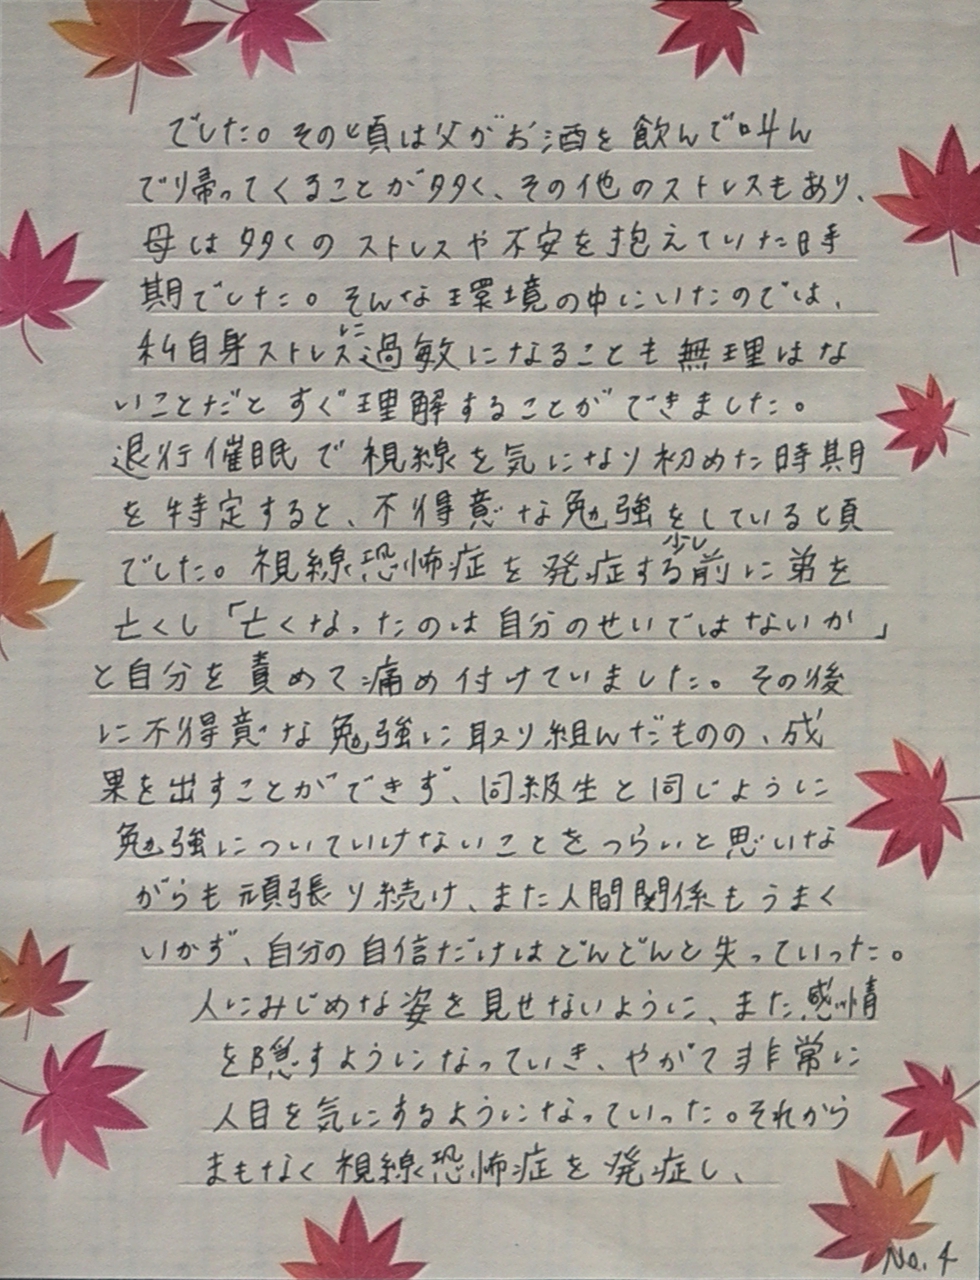 でした。その頃は父がお酒を飲んで叫ん
で帰ってくることが多く、その他のストレスもあり、
母は多くのストレスや不安を抱えていた時
期でした。そんな環境の中にいたのでは、
私自身ストレスに過敏になることも無理はな
いことだとすぐ理解することができました。
退行催眠で視線を気になり初めた時期
を特定すると、不得意な勉強をしている頃
でした。視線恐怖症を発症する少し前に弟を
亡くし「亡くなったのは自分のせいではないか」
と自分を責めて痛め付けていました。その後
に不得意な勉強に取り組んだものの、成
果を出すことができず、同級生と同じように
勉強についていけないことをつらいと思いな
がらも頑張り続け、また人間関係もうまく
いかず、自分の自信だけはどんどんと失っていった。
人にみじめな姿を見せないように、また感情
を隠すようになっていき、やがて非常に
人目を気にするようになっていった。それから
まもなく視線恐怖症を発症し、
No.4